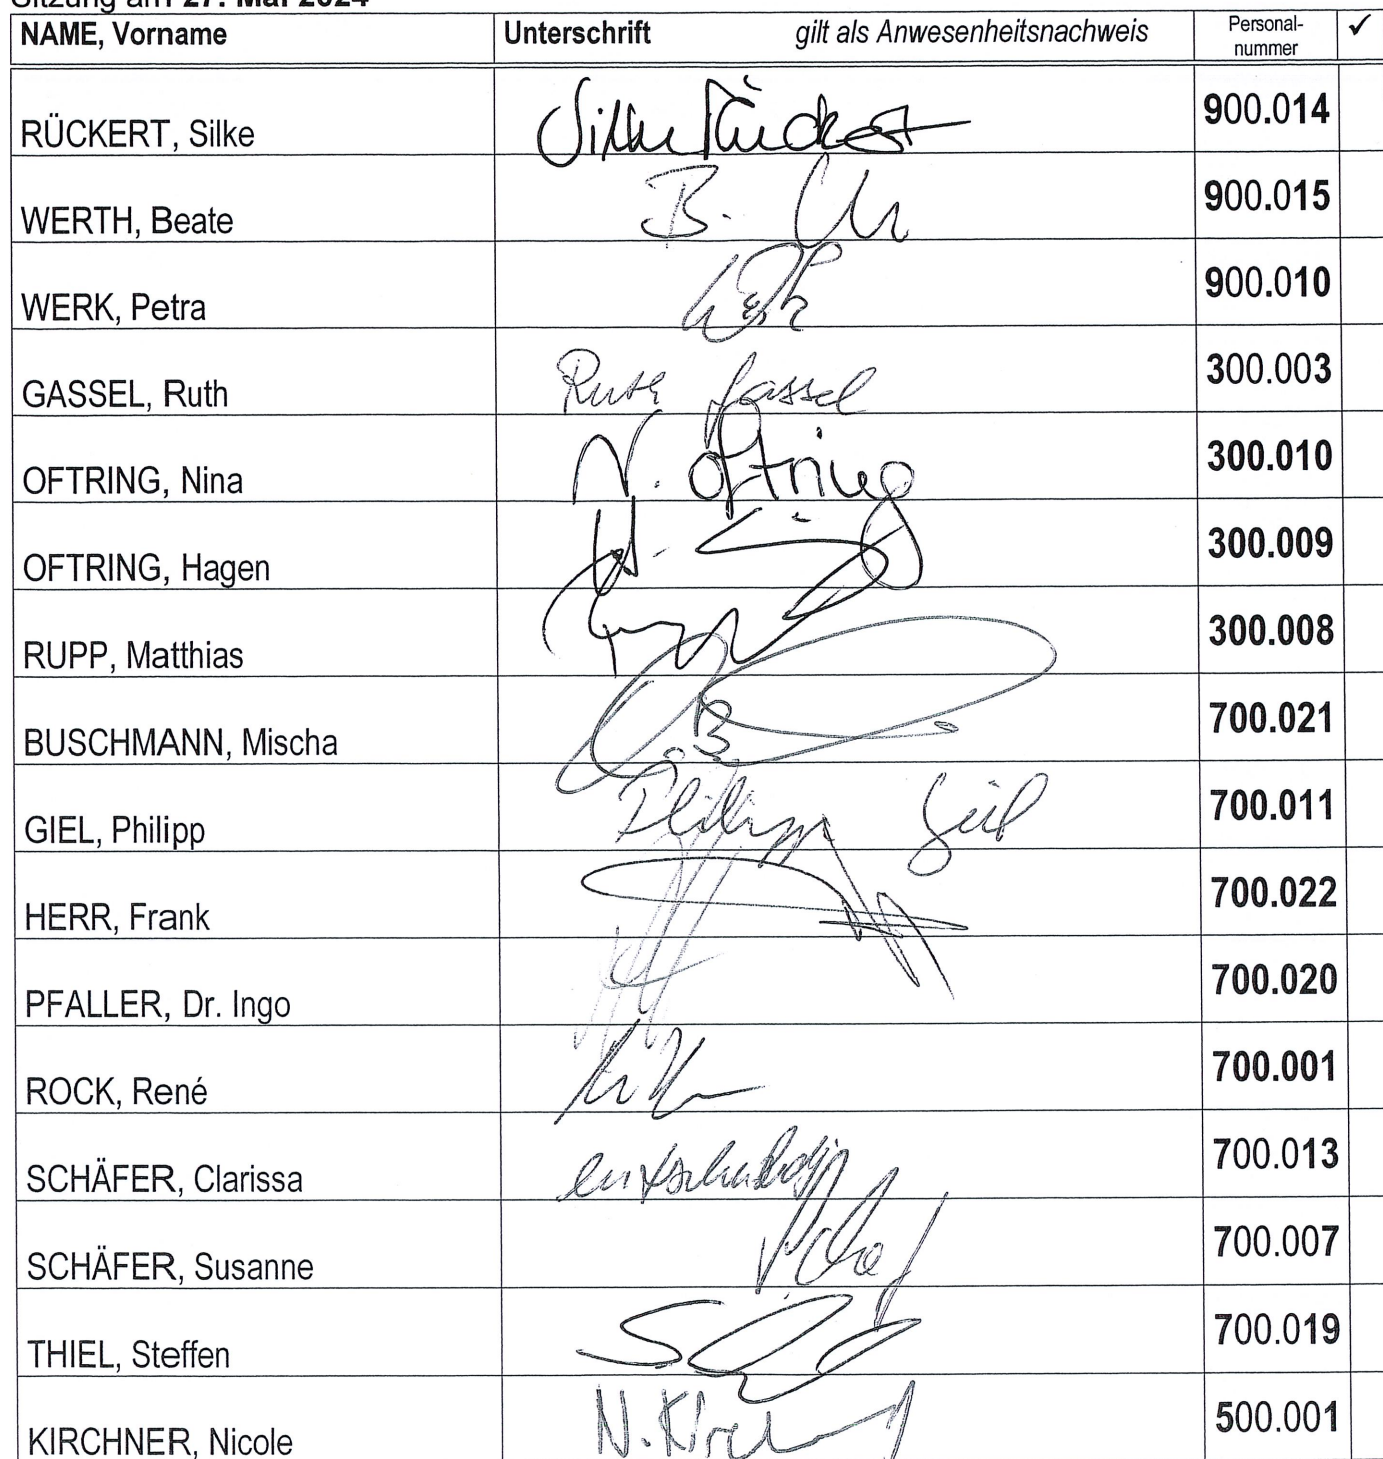 Sitzung am 27. Mai 2024
NAME, Vorname Unterschrift gilt als Anwesenheitsnachweis Personal-nummer ✓
RÜCKERT, Silke Silke Rückert 900.014
WERTH, Beate B. 900.015
WERK, Petra 900.010
GASSEL, Ruth Ruth Gassel 300.003
OFTRING, Nina N. Oftring 300.010
OFTRING, Hagen H. 300.009
RUPP, Matthias 300.008
BUSCHMANN, Mischa 700.021
GIEL, Philipp Philipp Giel 700.011
HERR, Frank 700.022
PFALLER, Dr. Ingo 700.020
ROCK, René 700.001
SCHÄFER, Clarissa entschuldigt 700.013
SCHÄFER, Susanne 700.007
THIEL, Steffen 700.019
KIRCHNER, Nicole N. Kirchner 500.001